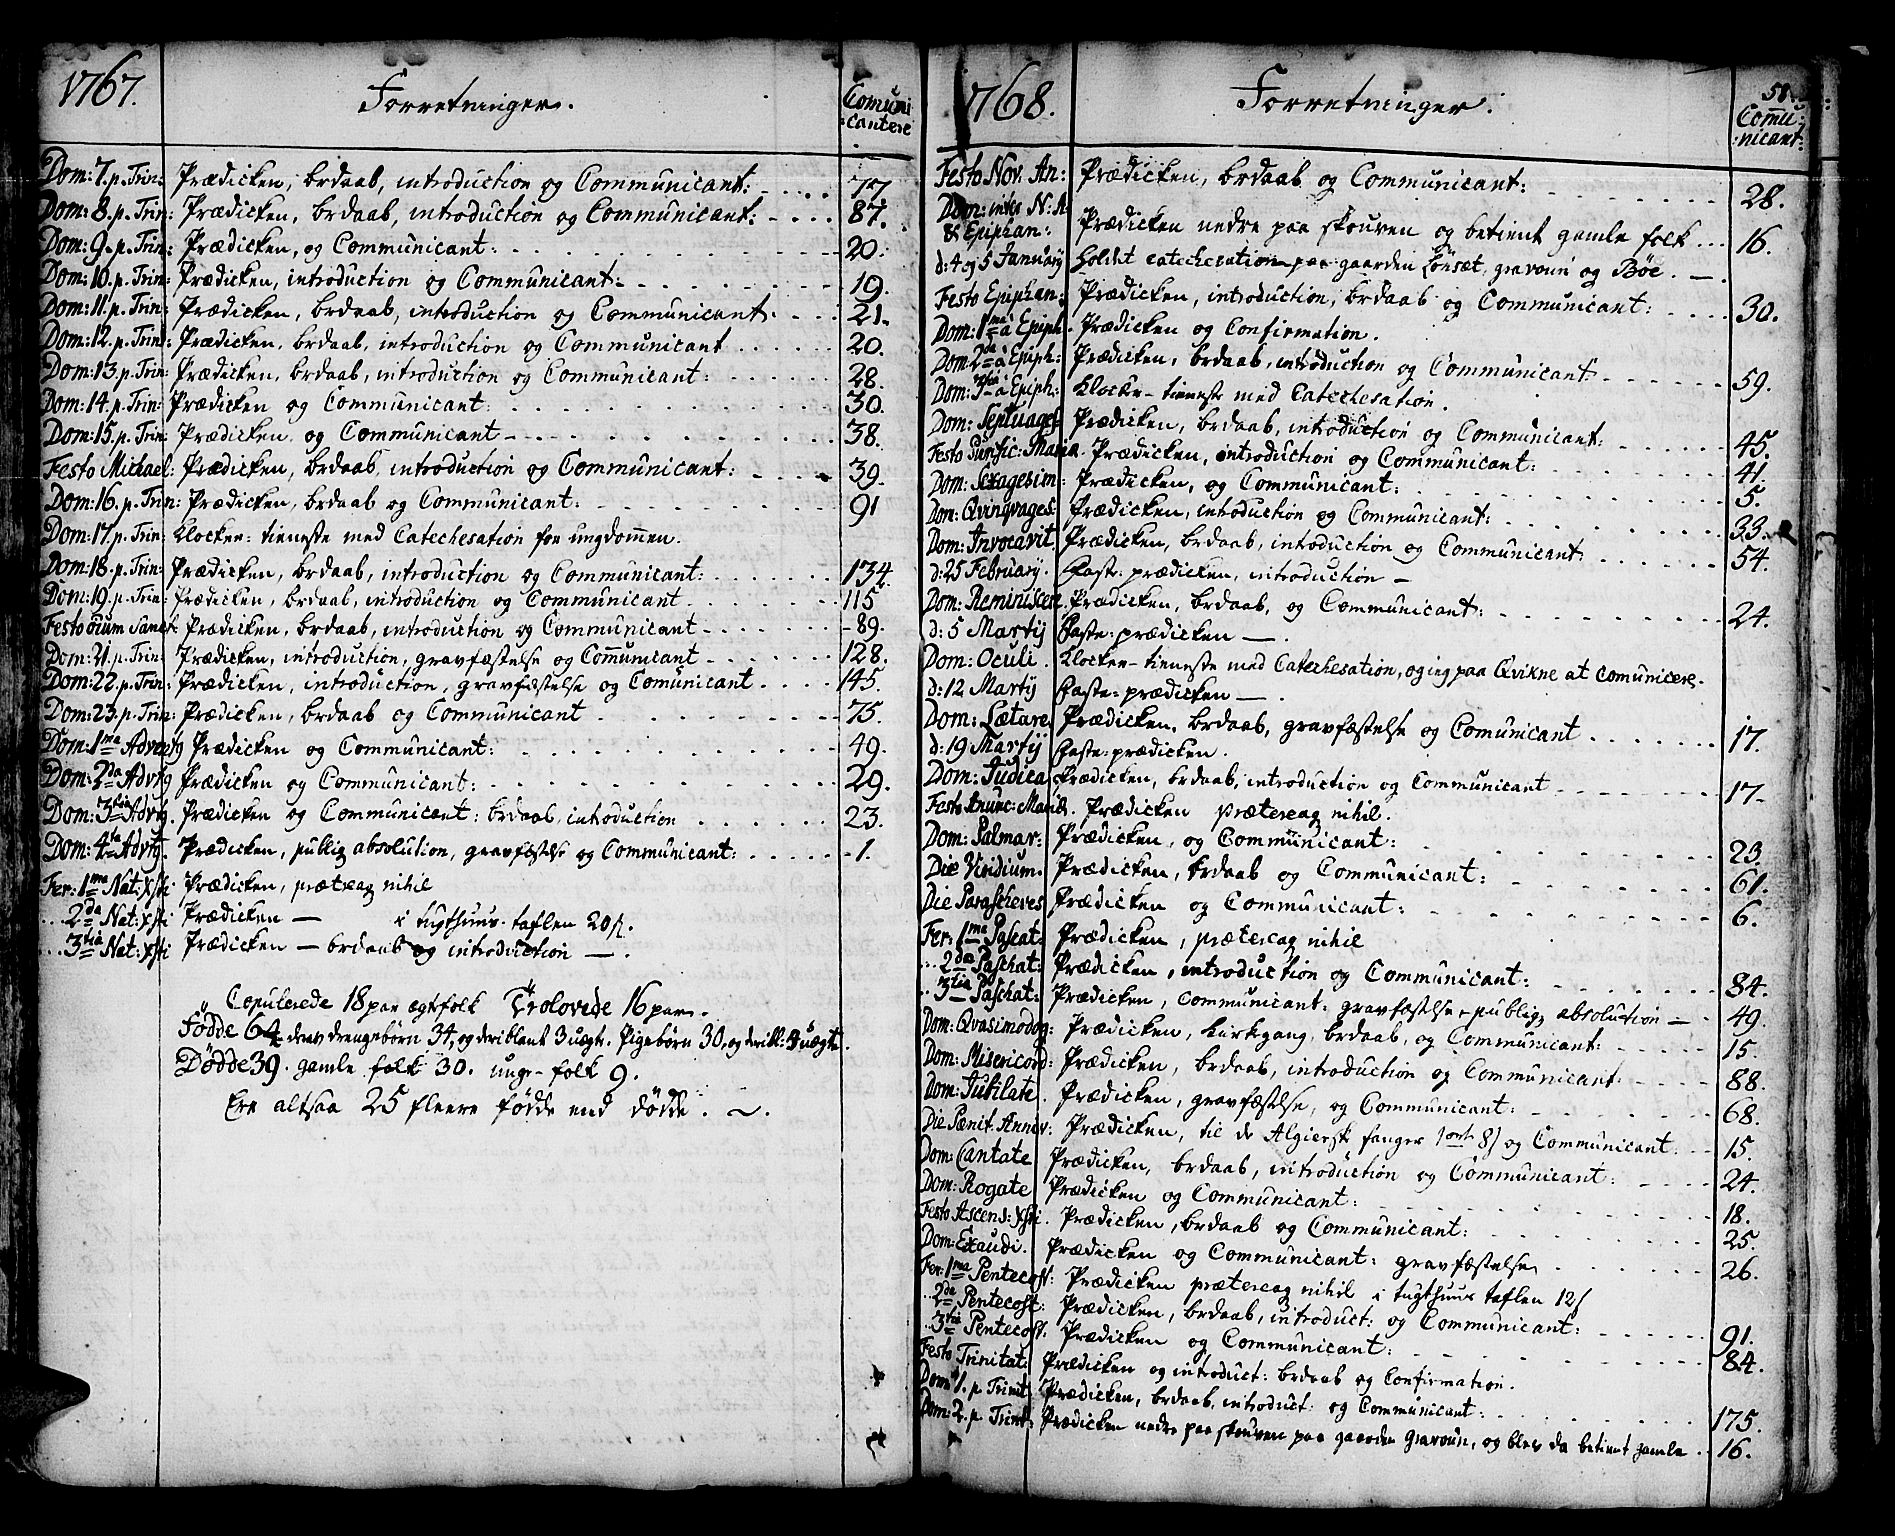 1767. Forretninger. Comuni-cantere
Dom: 7. p. Trin: Prædicken, brdaab, introduction og Communicant: 77.
Dom: 8. p. Trin: Prædicken, brdaab, introduction og Communicant: 87.
Dom: 9. p. Trin: Prædicken, og Communicant: 20.
Dom: 10. p. Trin: Prædicken, introduction og Communicant: 19.
Dom: 11. p. Trin: Prædicken, brdaab, introduction og Communicant. 21.
Dom: 12. p. Trin: Prædicken, brdaab, introduction og Communicant 20.
Dom: 13. p. Trin: Prædicken, brdaab, introduction og Communicant: 28.
Dom: 14. p. Trin: Prædicken og Communicant: 30.
Dom: 15. p. Trin: Prædicken og Communicant 38.
Festo Michael: Prædicken, brdaab, introduction og Communicant: 39.
Dom: 16. p. Trin: Prædicken, brdaab og Communicant: 91
Dom: 17. p. Trin: Klocker-tieneste med Catechesation for ungdommen.
Dom: 18. p. Trin: Prædicken, brdaab, introduction og Communicant: 134.
Dom: 19. p. Trin: Prædicken, brdaab, introduction og Communicant 115
Festo oium Sanct. Prædicken, brdaab, introduction og Communicant 89.
Dom: 21. p. Trin: Prædicken, introduction, gravfæstelse og Communicant 128.
Dom: 22. p. Trin: Prædicken, introduction, gravfæstelse og Comunicant 145.
Dom: 23. p. Trin: Prædicken, brdaab og Communicant 75.
Dom: 1ma Adventg Prædicken og Communicant: 49.
Dom: 2da Advtg Prædicken og Communicant: 29.
Dom: 3tia Advtg. Prædicken og Communicant: brdaab, introduction 23.
Dom: 4ta Advtg. Prædicken, publiq absolution, gravfæstelse og Communicant: 1.
Fer: 1ma Nat: Xsti Prædicken, prætereaq nihil
2da Nat: Xsti Prædicken — i tugthuus-taflen 20 s.
3tia Nat: Xsti Prædicken — brdaab og introduction —.
Copulerede 18 par ægtefolk Trolovede 16 par.
Fødde 64 derav drengebørn 34, og deriblant 3 uægte. Pigebørn 30, og deribl: 3 uægte.
Dødde 39. gamle folk 30. unge-folk 9.
Ere altsaa 25 fleere fødde end dødde.
1768. Forretninger. 58. Commu-nicant:
Festo Nov. An: Prædicken, brdaab og Communicant: 28.
Dom: inter N: A: & Epiphan: Prædicken nedre paa skouven og betient gamle folk 16.
d: 4 og 5 January Holdet catechesation paa gaarden Lönsæt, gravoun og Böe.
Festo Epiphan: Prædicken, introduction, brdaab og Communicant: 30.
Dom: 1ma à Epiph. Prædicken og Confirmation.
Dom: 2da à Epiph: Prædicken, brdaab, introduction og Communicant: 59.
Dom: 3tia à Epiph: Klocker-tieneste med Catechesation.
Dom: Septuages: Prædicken, brdaab, introduction og Communicant: 45.
Festo Purific: Mariæ. Prædicken, introduction og Communicant: 41.
Dom: Sexagesim: Prædicken, og Communicant: 5.
Dom: Qvinqvages: Prædicken, introduction og Communicant: 33.
Dom: Invocavit. Prædicken, brdaab, introduction og Communicant: 54.
d: 25 February. Faste-prædicken, introduction —
Dom: Reminiscere. Prædicken, brdaab, og Communicant: 24.
d: 5 Martij Faste-prædicken —.
Dom: Oculi. Klocker-tieneste med Catechesation, og ieg paa Qvikne at comunicere.
d: 12 Martij Faste-prædicken —.
Dom: Lætare. Prædicken, brdaab, gravfæstelse og Comunicant 17.
d: 19 Martij Faste-prædicken.
Dom: Judica. Prædicken, brdaab, introduction og Communicant 17.
Festo Anunc: Mariæ. Prædicken prætereaq nihil.
Dom: Palmar: Prædicken, og Communicant: 23.
Die Viridium. Prædicken, brdaab og Communicant: 61.
Die Parascheves Prædicken og Communicant: 6.
Fer: 1ma Pascat: Prædicken, prætereaq nihil
2da Paschat: Prædicken, introduction og Communicant: 84.
3tia Paschat: Prædicken, communicant: gravfæstelse, publiq absolution 49.
Dom: Qvasimodog: Prædicken, kirkgang, brdaab, og Communicant: 15.
Dom: Misericord: Prædicken, brdaab, introduction og Communicant: 88.
Dom: Jubilate. Prædicken, gravfæstelse, og Communicant: 68.
Die Pænit. Anniv: Prædicken, til de Algiersk fanger 1 ort 8 s og Communicant: 15.
Dom: Cantate Prædicken, brdaab, introduction og Communicant: 24.
Dom: Rogate Prædicken og Communicant: 18.
Festo Ascens: Xsti. Prædicken, brdaab og Communicant: 25.
Dom: Exaudi. Prædicken og Communicant: gravfæstelse 26.
Fer: 1ma Pentecost: Prædicken prætereaq nihil i tugthuus taflen 12 s
2da Pentecost: Prædicken, brdaab, introduct: og Communicant: 91.
3tia Pentecost: Prædicken og Communicant: 84.
Festo Trinitat: Prædicken og introduct: brdaab og Confirmation.
Dom: 1. p. Trinit: Prædicken, brdaab, introduct: og Communicant: 175.
Dom: 2. p. Trinit: Prædicken nedre paa skouven paa gaarden Gravoun, og blev da betient gamle 16.